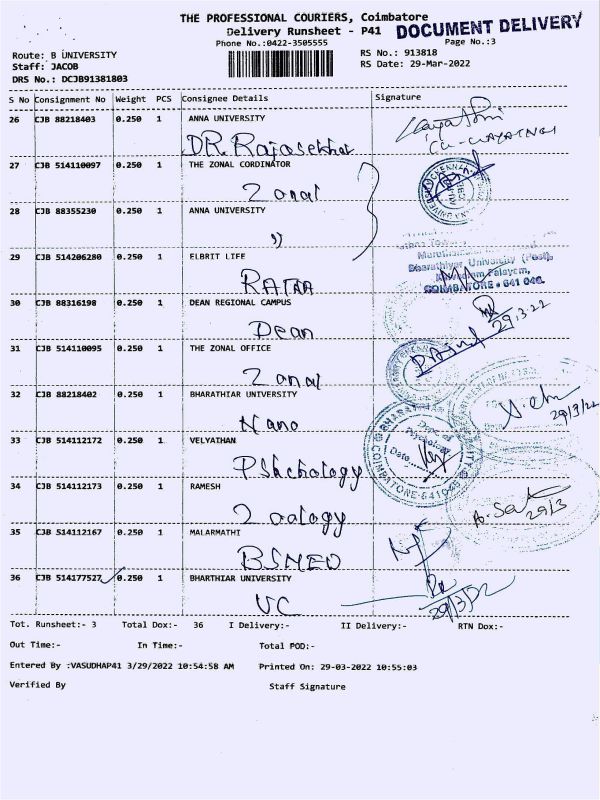 THE PROFESSIONAL COURIERS, Coimbatore
DOCUMENT DELIVERY
Delivery Runsheet - P41
Phone No.:0422-3505555
Page No.:3
Route: B UNIVERSITY
Staff: JACOB
DRS No.: DCJB91381803
RS No.: 913818
RS Date: 29-Mar-2022
S No Consignment No Weight PCS Consignee Details Signature
26 CJB 88218403 0.250 1 ANNA UNIVERSITY
DR. Rajasekhar
27 CJB 514110097 0.250 1 THE ZONAL CORDINATOR
Zonal
28 CJB 88355230 0.250 1 ANNA UNIVERSITY
"
29 CJB 514206280 0.250 1 ELBRIT LIFE
Bharathiyar University (Post),
COIMBATORE - 641 046.
30 CJB 88316198 0.250 1 DEAN REGIONAL CAMPUS
Dean
29.3.22
31 CJB 514110095 0.250 1 THE ZONAL OFFICE
Zonal
32 CJB 88218402 0.250 1 BHARATHIAR UNIVERSITY
Nano
29/3/22
33 CJB 514112172 0.250 1 VELYAIHAN
Pshchology
Dept. of
Psychology
Date
COIMBATORE-641046
34 CJB 514112173 0.250 1 RAMESH
Zoology
29/3
35 CJB 514112167 0.250 1 MALARMATHI
BSMED
36 CJB 514177527 0.250 1 BHARTHIAR UNIVERSITY
VC
29/3/22
Tot. Runsheet:- 3 Total Dox:- 36 I Delivery:- II Delivery:- RTN Dox:-
Out Time:- In Time:- Total POD:-
Entered By :VASUDHAP41 3/29/2022 10:54:58 AM Printed On: 29-03-2022 10:55:03
Verified By Staff Signature